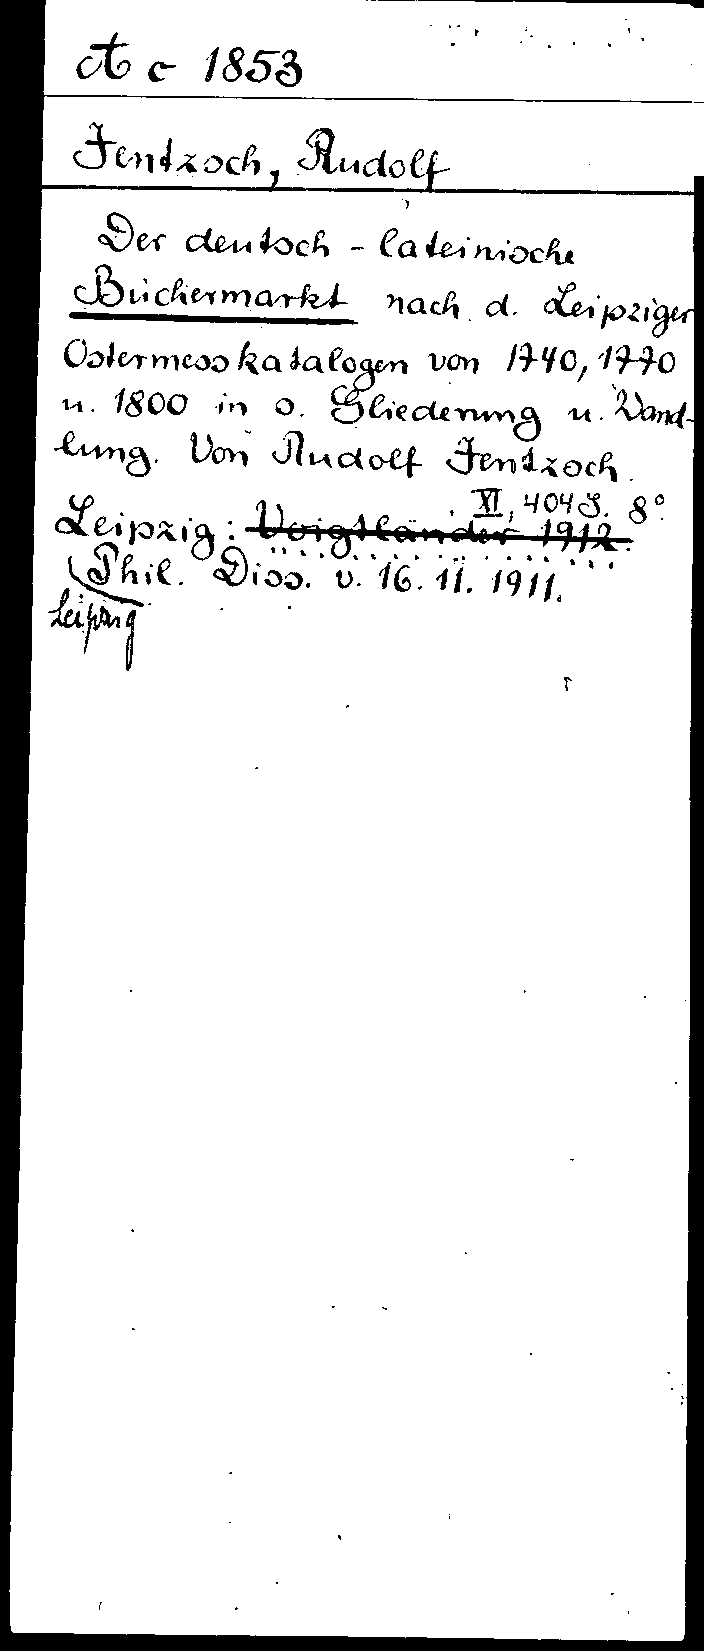 A c 1853
Jentzsch, Rudolf
Der deutsch-lateinische
Büchermarkt nach d. Leipziger
Ostermesskatalogen von 1740, 1770
u. 1800 in s. Gliederung u. Wand-
lung. Von Rudolf Jentzsch.
XI, 404 S. 8°
Leipzig: Voigtländer 1912.
Phil. Diss. v. 16. 11. 1911.
Leipzig